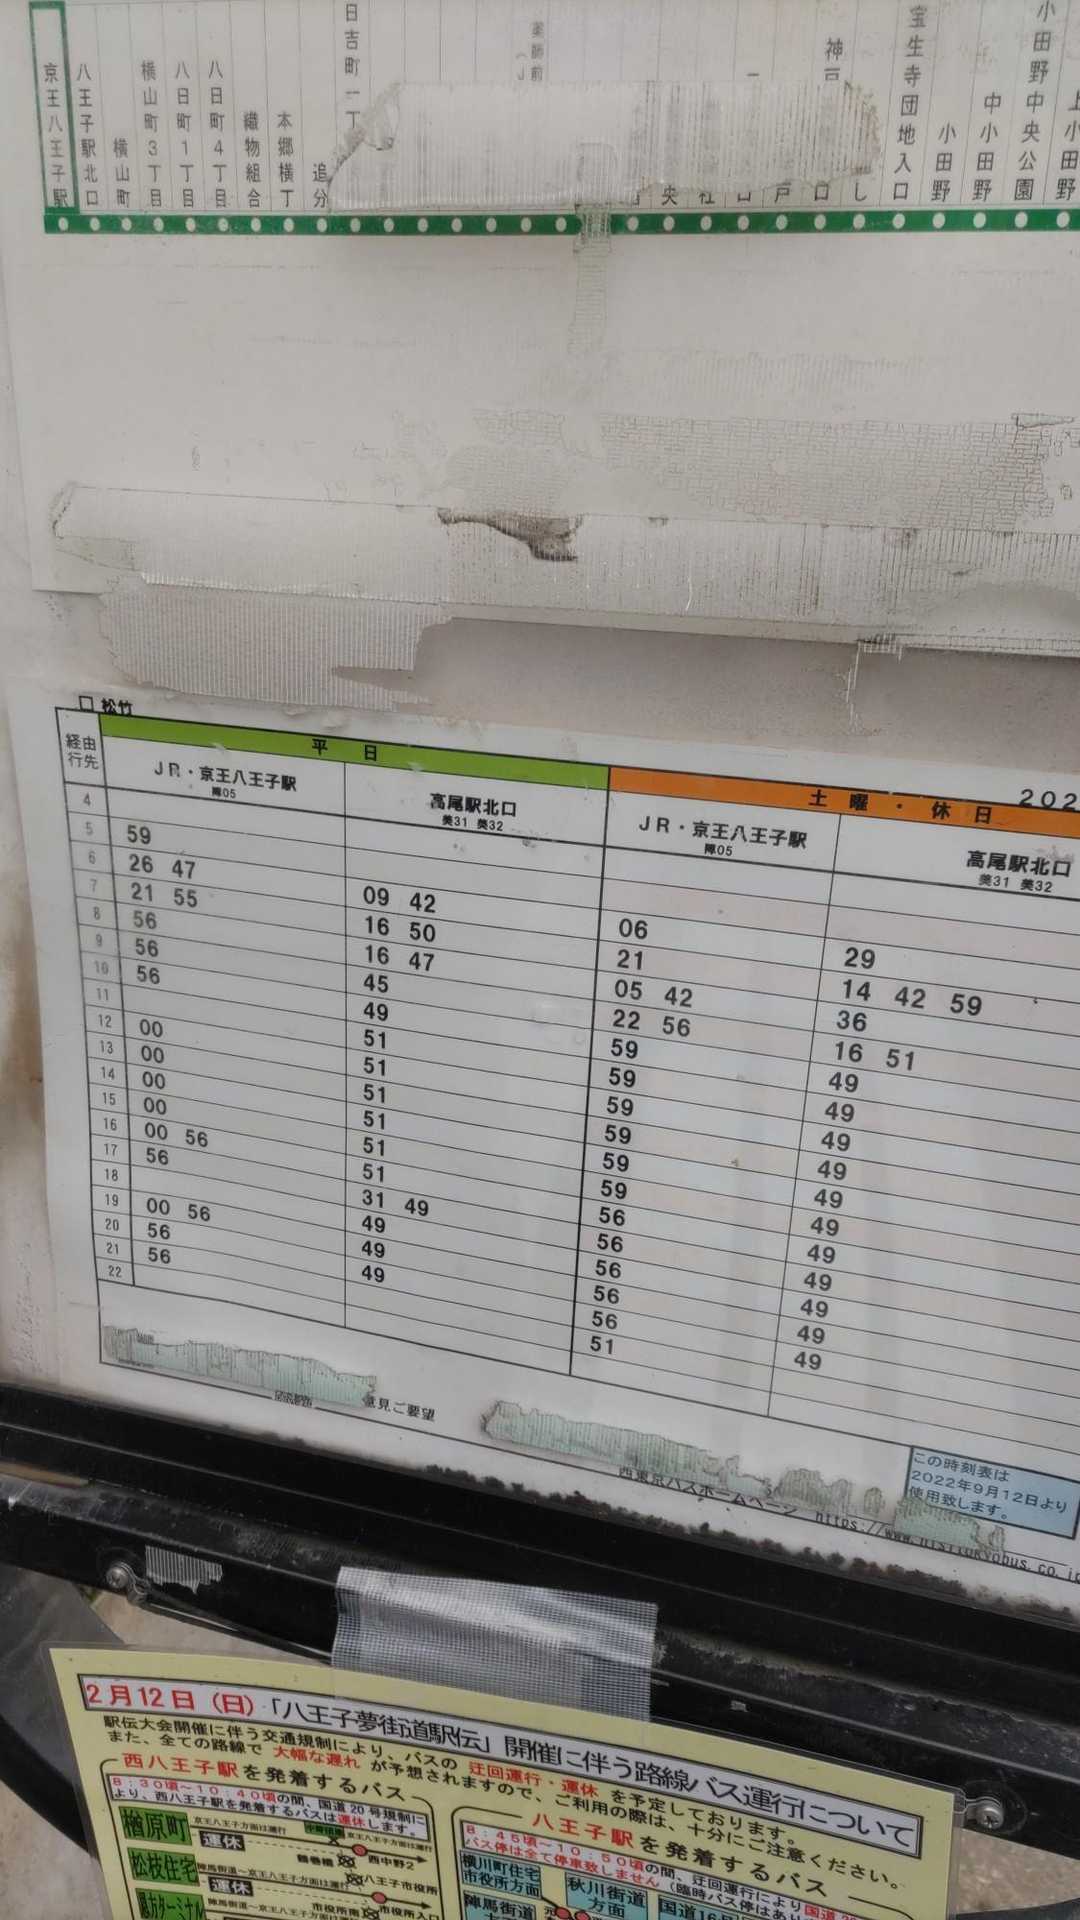 京王八王子駅
八王子駅北口
横山町
横山町3丁目
八日町1丁目
八日町4丁目
織物組合
本郷横丁
追分
日吉町一丁
薬師前
央
社
口
戸
口
し
神戸
宝生寺団地入口
小田野
中小田野
小田野中央公園
上小田野
口 松竹
202
平 日 土 曜 ・ 休 日
経由
行先
JR・京王八王子駅 高尾駅北口 JR・京王八王子駅 高尾駅北口
陣05 美31 美32 陣05 美31 美32
4
5 59
6 26 47 09 42 06 29
7 21 55 16 50 21 14 42 59
8 56 16 47 05 42 36
9 56 45 22 56 16 51
10 56 49 59 49
11 51 59 49
12 00 51 59 49
13 00 51 59 49
14 00 51 59 49
15 00 51 59 49
16 00 56 51 56 49
17 56 31 49 56 49
18 49 56 49
19 00 56 49 56 49
20 56 49 56 49
21 56 51
22
意見ご要望
西東京バスホームページ https://www.nisitokyobus.co.jp
この時刻表は
2022年9月12日より
使用致します。
2月12日（日）「八王子夢街道駅伝」開催に伴う路線バス運行について
駅伝大会開催に伴う交通規制により、バスの 迂回運行・運休 を予定しております。
また、全ての路線で 大幅な遅れ が予想されますので、ご利用の際は、十分にご注意ください。
西八王子駅を発着するバス
8：30頃～10：40頃の間、国道20号規制に
より、西八王子駅を発着するバスは運休します。
檜原町
京王八王子方面は運行
運休
京王八王子方面は運行
鶴巻橋
西中野2
松枝住宅
陣馬街道～京王八王子方面は運行
運休
八王子市役所
陣馬街道～京王八王子方面は運行
市役所南
市役所入口
八王子駅を発着するバス
8：45頃～10：50頃の間、迂回運行により国道
バス停は全て停車致しません（臨時バス停はあり
横川町住宅
市役所方面
秋川街道
方面
陣馬街道
国道16号